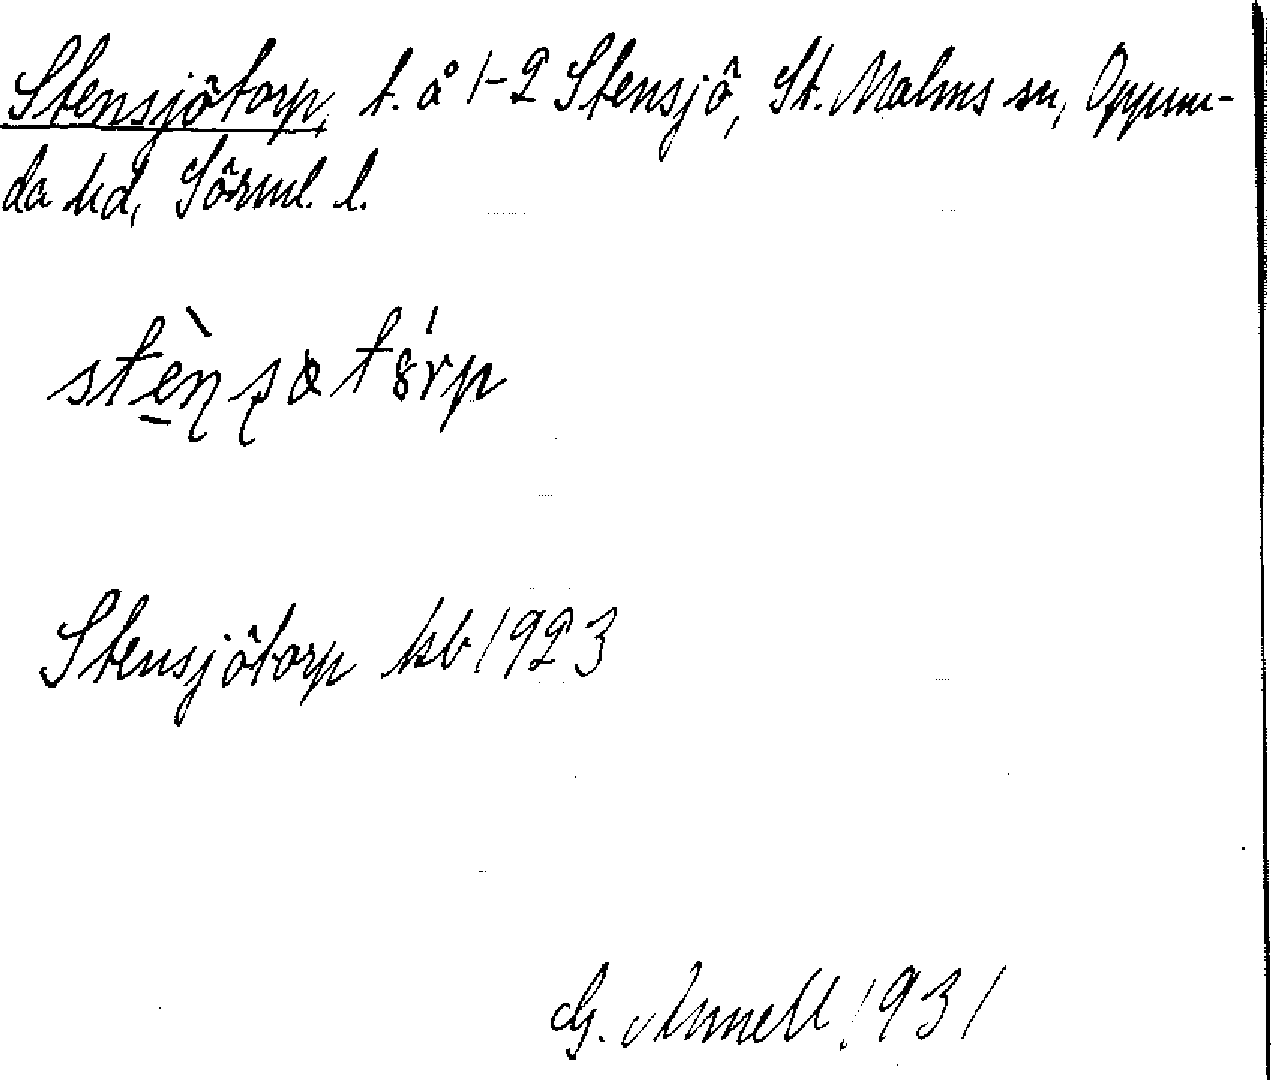 Stensjötorp, t. å 1-2 Stensjö, St. Malms sn, Oppun-
da hd, Sörml. l.
Stensjötorp kb 1923
G. Annell 1931